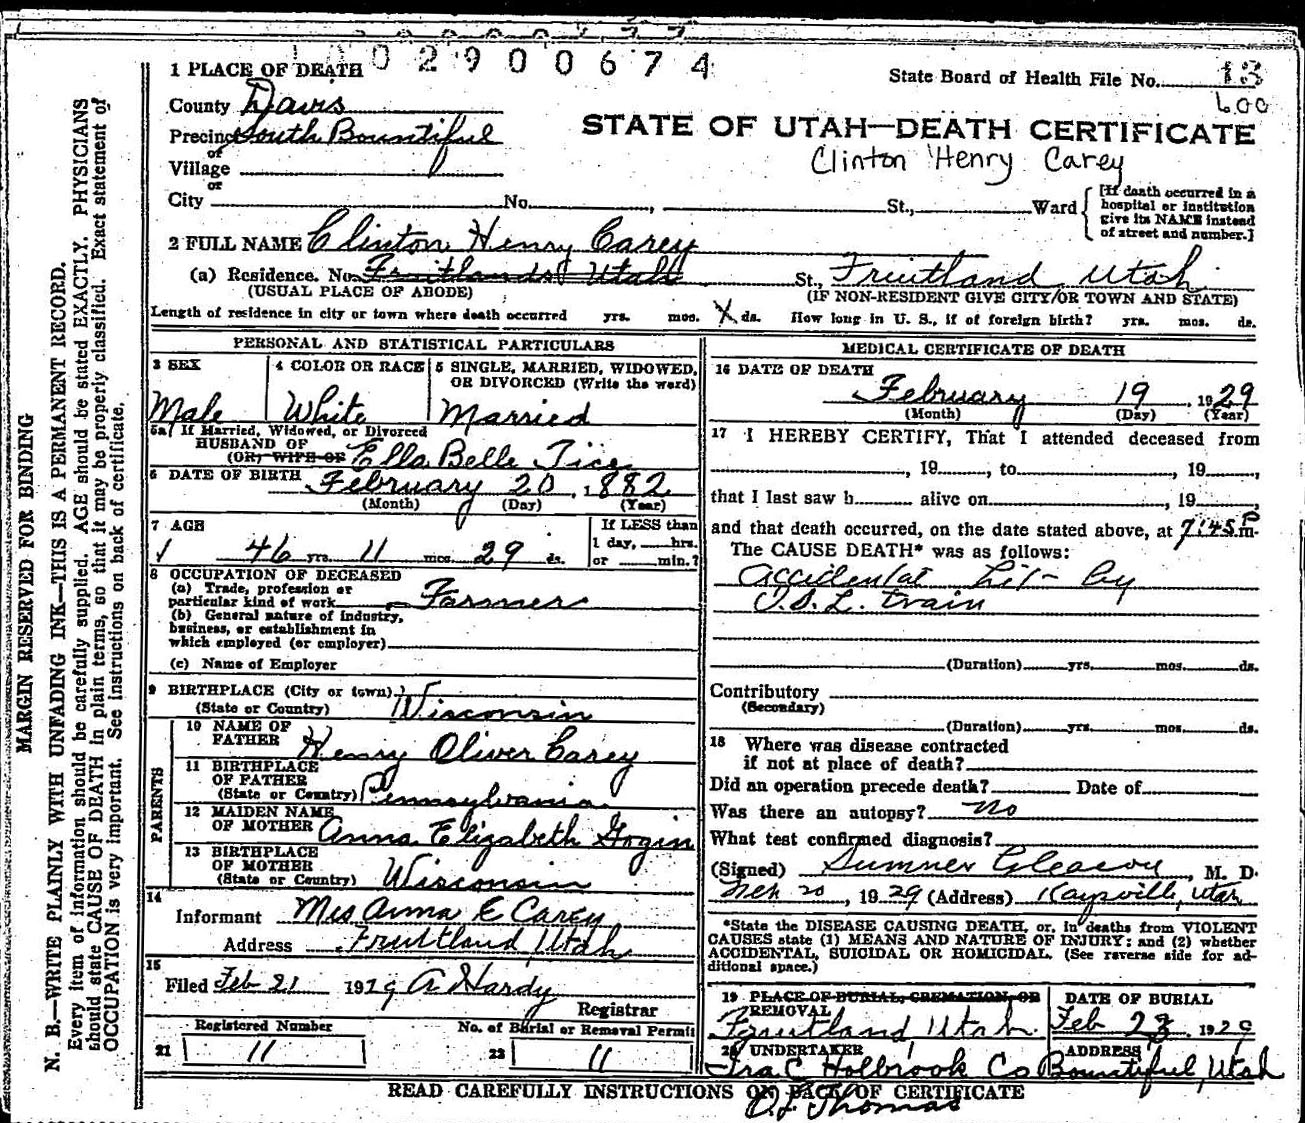 002900674
1 PLACE OF DEATH
State Board of Health File No. 13
600
County Davis
Precinct South Bountiful
or
Village
or
STATE OF UTAH—DEATH CERTIFICATE
Clinton Henry Carey
City No. , St., Ward
[If death occurred in a
hospital or institution
give its NAME instead
of street and number.]
2 FULL NAME Clinton Henry Carey
(a) Residence. No. Fruitlands Utah St., Fruitland Utah
(USUAL PLACE OF ABODE) (IF NON-RESIDENT GIVE CITY/OR TOWN AND STATE)
Length of residence in city or town where death occurred yrs. mos. X ds. How long in U. S., if of foreign birth? yrs. mos. ds.
PERSONAL AND STATISTICAL PARTICULARS
3 SEX 4 COLOR OR RACE 5 SINGLE, MARRIED, WIDOWED,
OR DIVORCED (Write the word)
Male White Married
5a If Married, Widowed, or Divorced
HUSBAND OF
(OR) WIFE OF Ella Belle Tice
6 DATE OF BIRTH February 20, 1882
(Month) (Day) (Year)
7 AGE If LESS than
1 day, hrs.
46 yrs. 11 mos. 29 ds. or min.?
8 OCCUPATION OF DECEASED
(a) Trade, profession or
particular kind of work Farmer
(b) General nature of industry,
business, or establishment in
which employed (or employer)
(c) Name of Employer
9 BIRTHPLACE (City or town)
(State or Country) Wisconsin
PARENTS
10 NAME OF
FATHER Henry Oliver Carey
11 BIRTHPLACE
OF FATHER
(State or Country) Pennsylvania
12 MAIDEN NAME
OF MOTHER Anna Elizabeth Gogin
13 BIRTHPLACE
OF MOTHER
(State or Country) Wisconsin
14
Informant Mrs Anna E Carey
Address Fruitland, Utah
15
Filed Feb 21 1929 A Hardy
Registrar
Registered Number No. of Burial or Removal Permit
21 11 22 11
MEDICAL CERTIFICATE OF DEATH
16 DATE OF DEATH
February 19, 1929
(Month) (Day) (Year)
17 I HEREBY CERTIFY, That I attended deceased from
, 19 , to , 19 ,
that I last saw h alive on , 19
and that death occurred, on the date stated above, at 7:45 P m.
The CAUSE DEATH* was as follows:
Accidental hit by
O.S.L. train
(Duration) yrs. mos. ds.
Contributory
(Secondary)
(Duration) yrs. mos. ds.
18 Where was disease contracted
if not at place of death?
Did an operation precede death? Date of
Was there an autopsy? no
What test confirmed diagnosis?
(Signed) Sumner Gleason, M. D.
Feb 20, 1929 (Address) Kaysville, Utah
*State the DISEASE CAUSING DEATH, or, in deaths from VIOLENT
CAUSES state (1) MEANS AND NATURE OF INJURY: and (2) whether
ACCIDENTAL, SUICIDAL OR HOMICIDAL. (See reverse side for ad-
ditional space.)
19 PLACE OF BURIAL, CREMATION, OR
REMOVAL DATE OF BURIAL
Fruitland Utah Feb 23, 1929
20 UNDERTAKER ADDRESS
Ira C Holbrook Co Bountiful, Utah
READ CAREFULLY INSTRUCTIONS ON BACK OF CERTIFICATE
O. L. Thomas
MARGIN RESERVED FOR BINDING
N. B.—WRITE PLAINLY WITH UNFADING INK—THIS IS A PERMANENT RECORD.
Every item of information should be carefully supplied. AGE should be stated EXACTLY. PHYSICIANS
should state CAUSE OF DEATH in plain terms, so that it may be properly classified. Exact statement of
OCCUPATION is very important. See instructions on back of certificate.